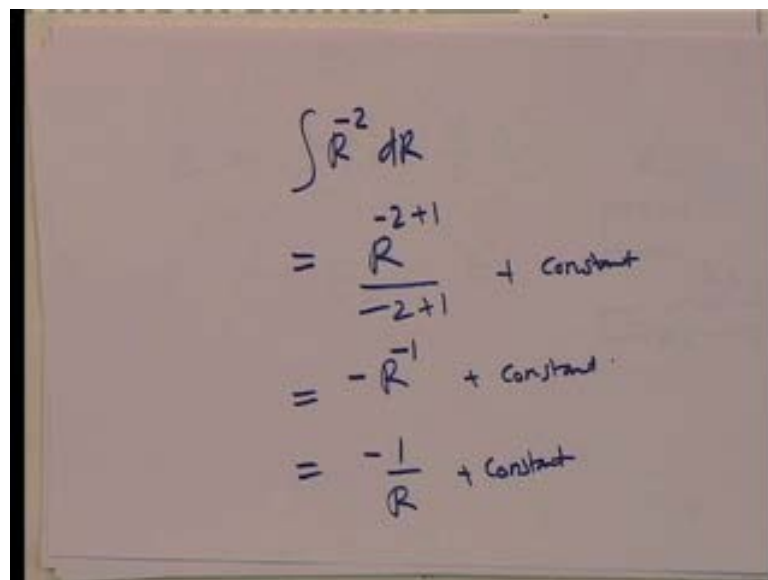 ∫ R^-2 dR
= R^(-2+1) / (-2+1) + Constant
= - R^-1 + Constant
= -1/R + Constant